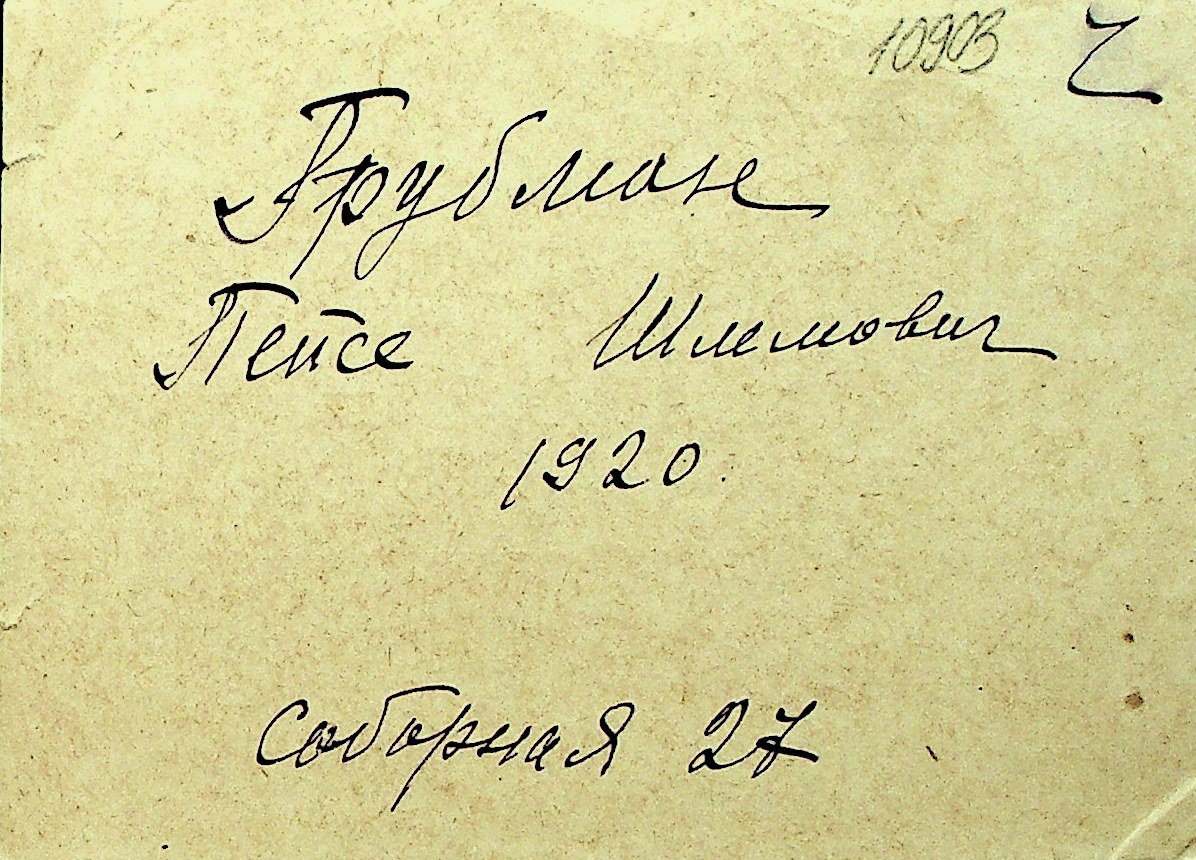 10903
Грубман
Пейсе Шлемович
1920.
Соборная 27